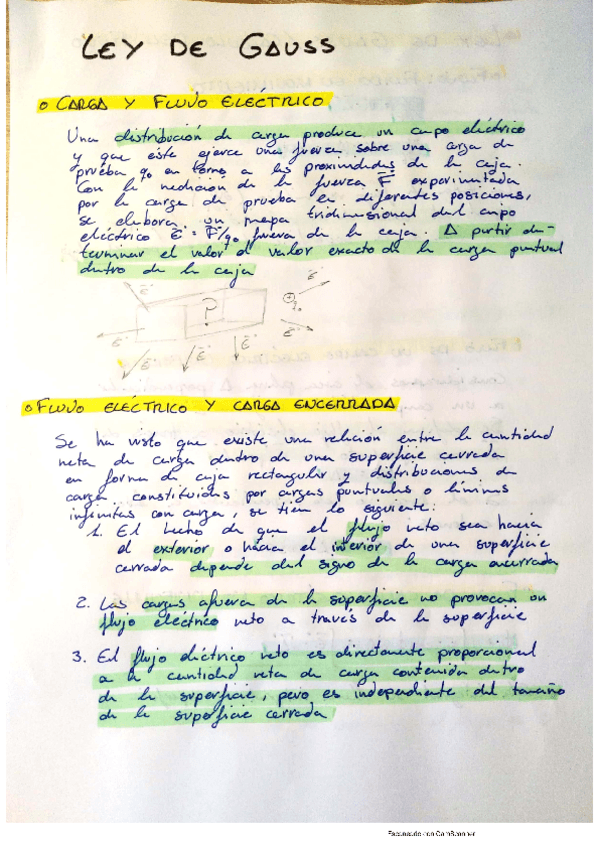 LEY DE GAUSS
o CARGA Y FLUJO ELÉCTRICO
Una distribución de carga produce un campo eléctrico
y que este ejerce una fuerza sobre una carga de
prueba q₀ en torno a las proximidades de la caja.
Con la medición de la fuerza F⃗ experimentada
por la carga de prueba en diferentes posiciones,
se elabora un mapa tridimensional del campo
eléctrico E⃗ = F⃗/q₀ fuera de la caja. A partir de-
terminar el valor el valor exacto de la carga puntual
dentro de la caja
E⃗ E⃗
? + q₀
E⃗ E⃗
E⃗ E⃗ E⃗
o FLUJO ELÉCTRICO Y CARGA ENCERRADA
Se ha visto que existe una relación entre la cantidad
neta de carga dentro de una superficie cerrada
en forma de caja rectangular y distribuciones de
carga constituidas por cargas puntuales o láminas
infinitas con carga, se tien lo siguiente:
1. El hecho de que el flujo neto sea hacia
el exterior o hacia el interior de una superficie
cerrada depende del signo de la carga encerrada
2. Las cargas afuera de la superficie no provocan un
flujo eléctrico neto a través de la superficie
3. El flujo eléctrico neto es directamente proporcional
a la cantidad neta de carga contenida dentro
de la superficie, pero es independiente del tamaño
de la superficie cerrada
Escaneado con CamScanner